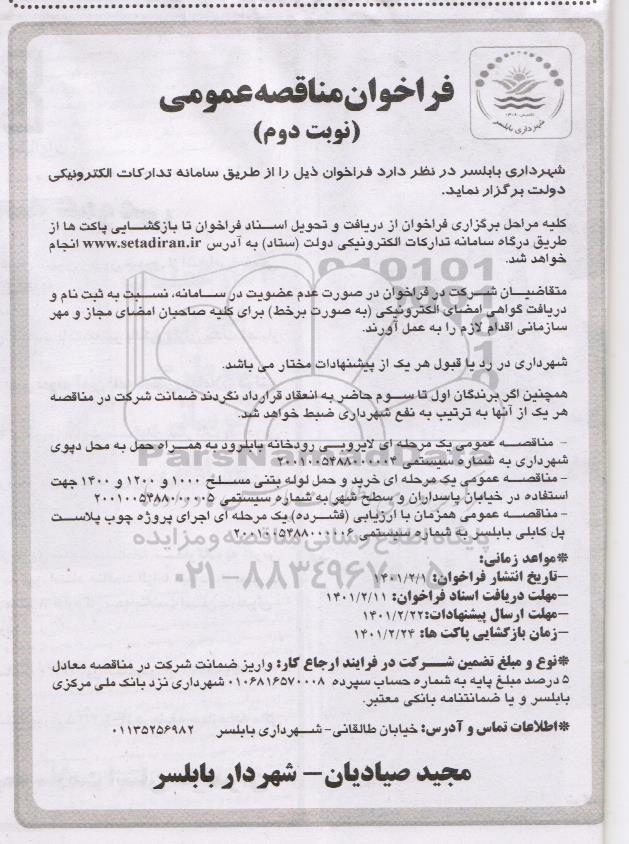 فراخوان مناقصه عمومی
(نوبت دوم)
شهرداری بابلسر
شهرداری بابلسر در نظر دارد فراخوان ذیل را از طریق سامانه تدارکات الکترونیکی
دولت برگزار نماید.
کلیه مراحل برگزاری فراخوان از دریافت و تحویل اسناد فراخوان تا بازگشایی پاکت ها از
طریق درگاه سامانه تدارکات الکترونیکی دولت (ستاد) به آدرس www.setadiran.ir انجام
خواهد شد.
متقاضیان شرکت در فراخوان در صورت عدم عضویت در سامانه، نسبت به ثبت نام و
دریافت گواهی امضای الکترونیکی (به صورت برخط) برای کلیه صاحبان امضای مجاز و مهر
سازمانی اقدام لازم را به عمل آورند.
شهرداری در رد یا قبول هر یک از پیشنهادات مختار می باشد.
همچنین اگر برندگان اول تا سوم حاضر به انعقاد قرارداد نگردند ضمانت شرکت در مناقصه
هر یک از آنها به ترتیب به نفع شهرداری ضبط خواهد شد.
- مناقصه عمومی یک مرحله ای لایروبی رودخانه بابلرود به همراه حمل به محل دپوی
شهرداری به شماره سیستمی ۲۰۰۱۰۰۵۴۸۸۰۰۰۰۰۴
- مناقصه عمومی یک مرحله ای خرید و حمل لوله بتنی مسلح ۱۰۰۰ و ۱۲۰۰ و ۱۴۰۰ جهت
استفاده در خیابان پاسداران و سطح شهر به شماره سیستمی ۲۰۰۱۰۰۵۴۸۸۰۰۰۰۰۵
- مناقصه عمومی همزمان با ارزیابی (فشرده) یک مرحله ای اجرای پروژه چوب پلاست
پل کابلی بابلسر به شماره سیستمی ۲۰۰۱۰۰۵۴۸۸۰۰۰۰۰۶
*مواعد زمانی:
–تاریخ انتشار فراخوان: ۱۴۰۱/۲/۱
–مهلت دریافت اسناد فراخوان: ۱۴۰۱/۲/۱۱
–مهلت ارسال پیشنهادات: ۱۴۰۱/۲/۲۲
–زمان بازگشایی پاکت ها: ۱۴۰۱/۲/۲۴
*نوع و مبلغ تضمین شرکت در فرایند ارجاع کار: واریز ضمانت شرکت در مناقصه معادل
۵ درصد مبلغ پایه به شماره حساب سپرده ۰۱۰۶۸۱۶۵۷۰۰۰۸ شهرداری نزد بانک ملی مرکزی
بابلسر و یا ضمانتنامه بانکی معتبر.
*اطلاعات تماس و آدرس: خیابان طالقانی- شهرداری بابلسر ۰۱۱۳۵۲۵۶۹۸۲
مجید صیادیان– شهردار بابلسر
ParsNamadData
پایگاه اطلاع رسانی مناقصه و مزایده
۰۲۱-۸۸۳۴۹۶۷۰-۵